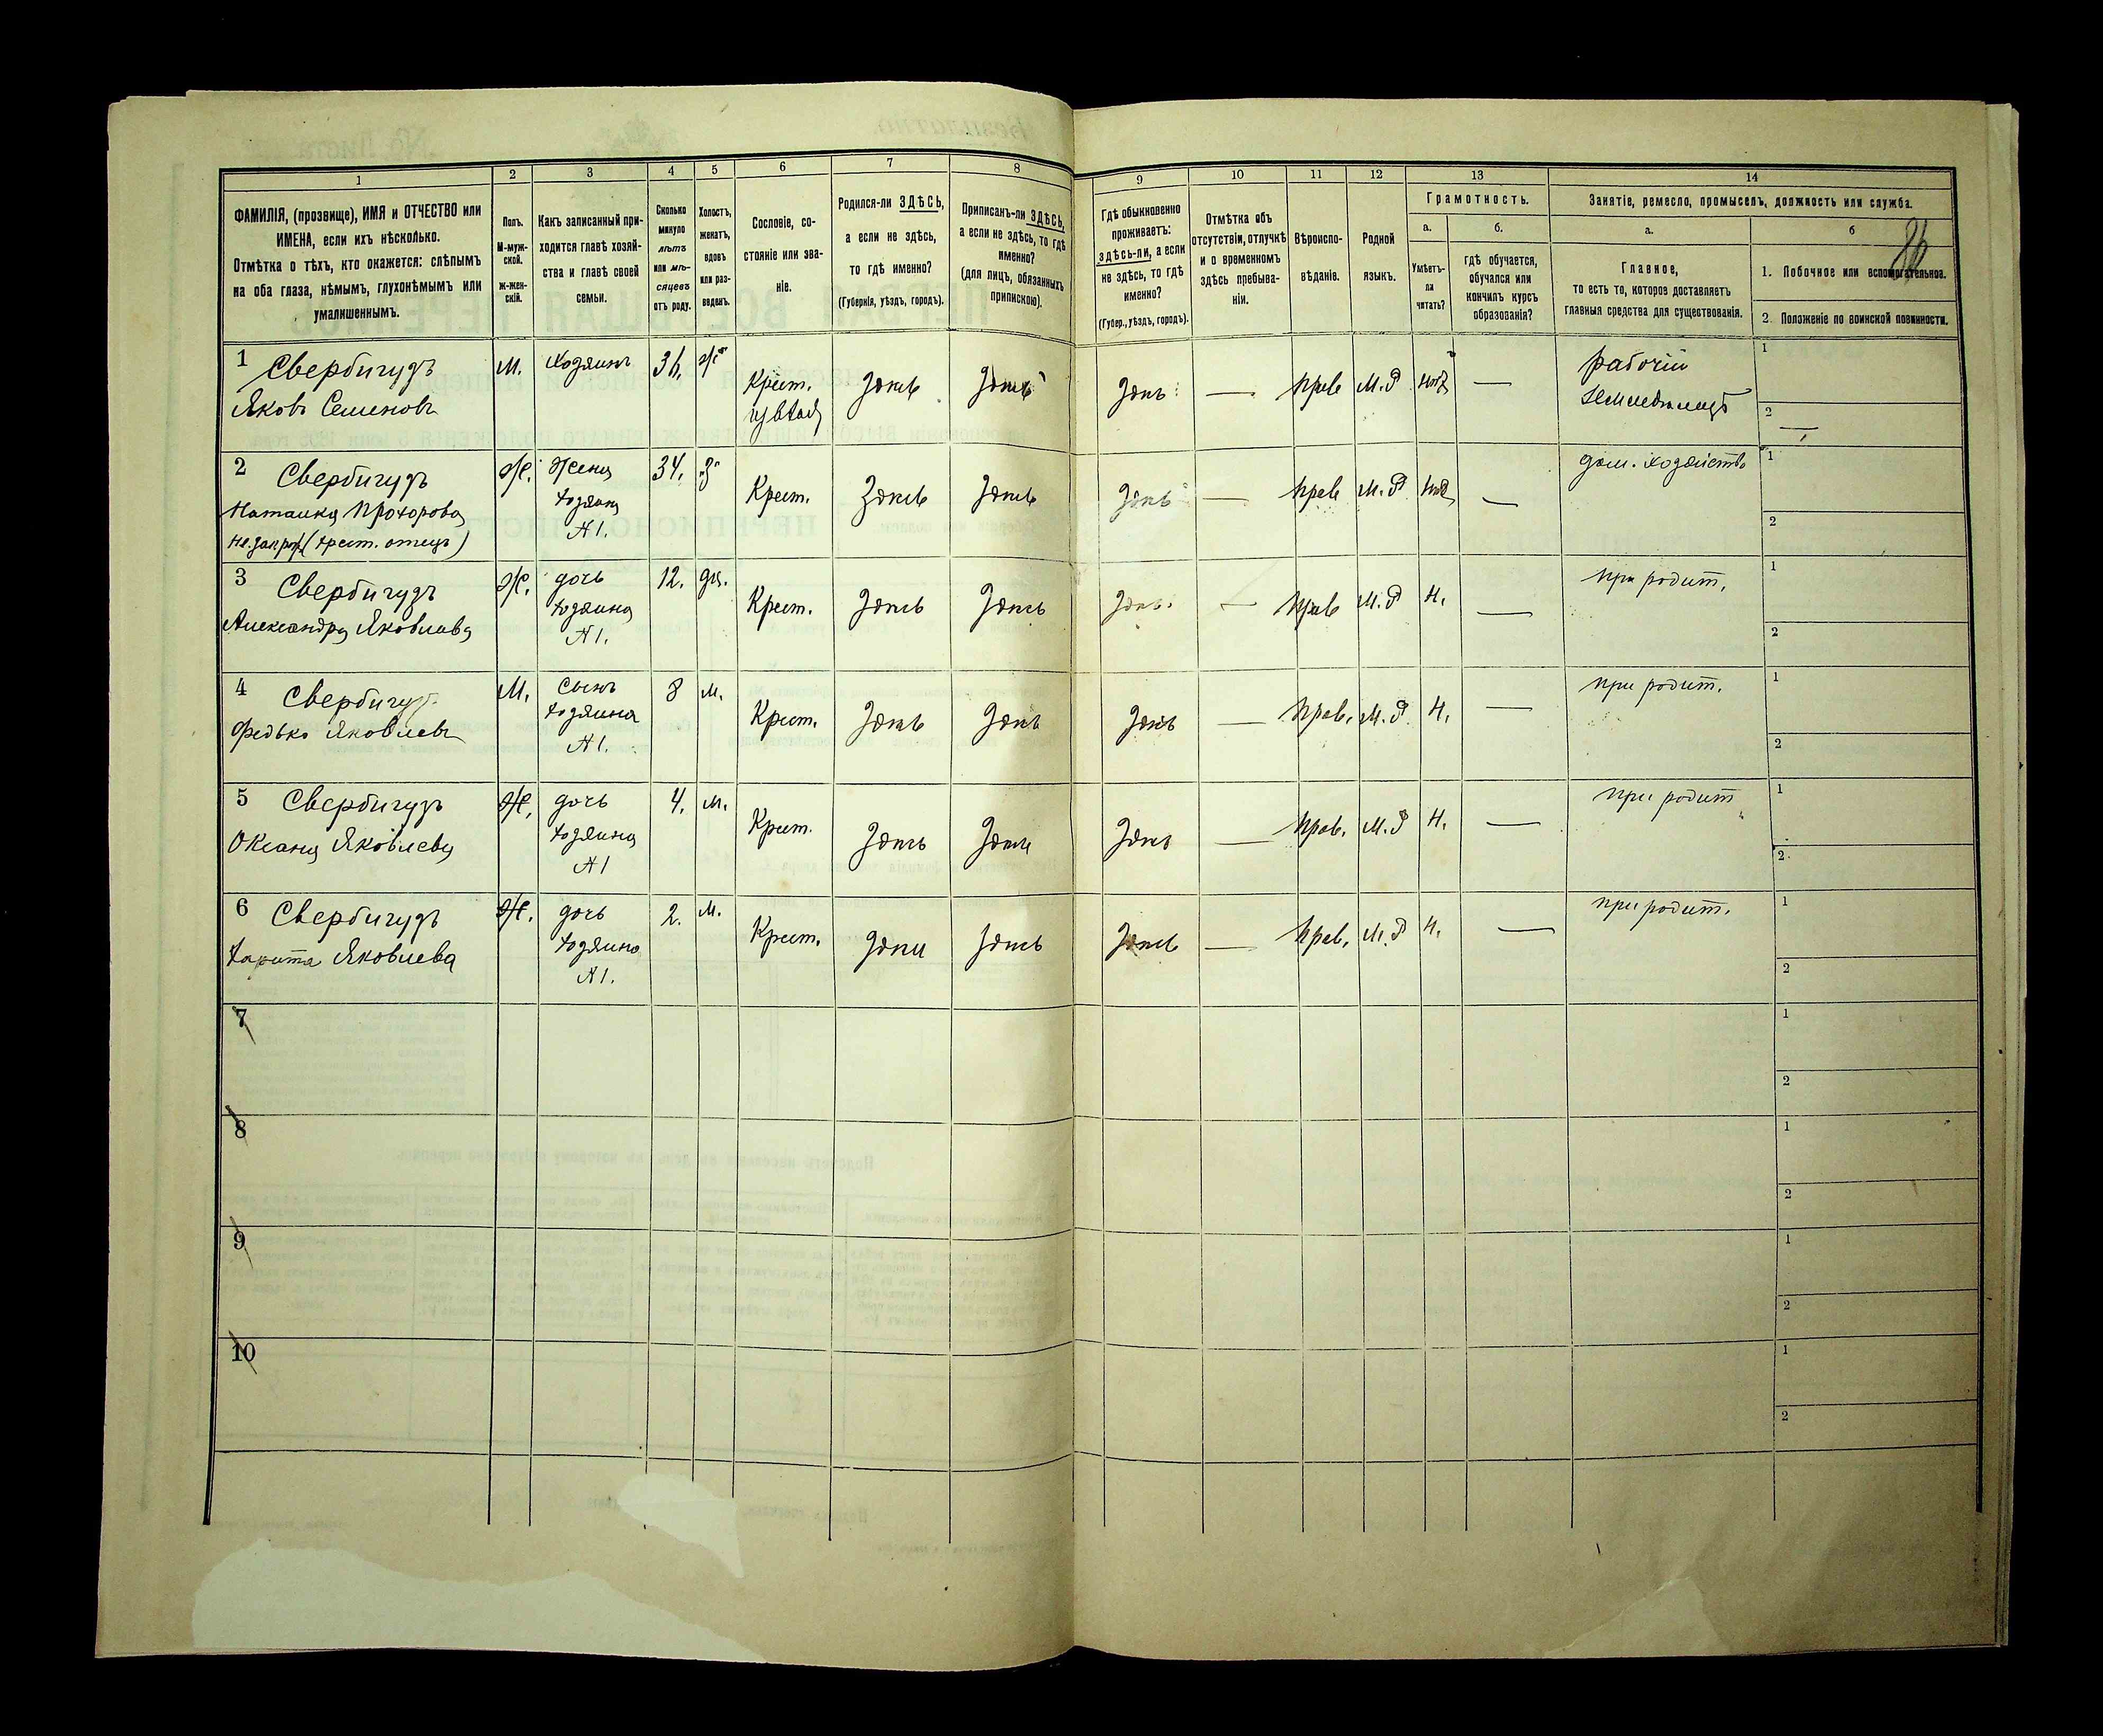 1 2 3 4 5 6 7 8 9 10 11 12 13 14
ФАМИЛІЯ, (прозвище), ИМЯ и ОТЧЕСТВО или
ИМЕНА, если ихъ нѣсколько.
Отмѣтка о тѣхъ, кто окажется: слѣпымъ
на оба глаза, нѣмымъ, глухонѣмымъ или
умалишеннымъ.
Полъ.
М-муж-
ской.
ж-жен-
скій.
Какъ записанный при-
ходится главѣ хозяй-
ства и главѣ своей
семьи.
Сколько
минуло
лѣтъ
или мѣ-
сяцевъ
отъ роду.
Холостъ,
женатъ,
вдовъ
или раз-
веденъ.
Сословіе, со-
стояніе или зва-
ніе.
Родился-ли ЗДѢСЬ,
а если не здѣсь,
то гдѣ именно?
(Губернія, уѣздъ, городъ).
Приписанъ-ли ЗДѢСЬ,
а если не здѣсь, то гдѣ
именно?
(для лицъ, обязанныхъ
припискою).
Гдѣ обыкновенно
проживаетъ:
здѣсь-ли, а если
не здѣсь, то гдѣ
именно?
(Губер., уѣздъ, городъ).
Отмѣтка объ
отсутствіи, отлучкѣ
и о временномъ
здѣсь пребыва-
ніи.
Вѣроиспо-
вѣданіе.
Родной
языкъ.
Грамотность.
а.
Умѣетъ-
ли
читать?
б.
гдѣ обучается,
обучался или
кончилъ курсъ
образованія?
Занятіе, ремесло, промыселъ, должность или служба.
а.
Главное,
то есть то, которое доставляетъ
главныя средства для существованія.
б
1. Побочное или вспомогательное.
2. Положеніе по воинской повинности.
1 Свербигузъ М. Хозяинъ 36. ж
Яковъ Семеновъ Крест. здѣсь здѣсь здѣсь — прав М.Р нѣт —
рабочій
земледѣлецъ
1
2 —
2 Свербигузъ Ж. Жена 34. З
Наталка Прохорова хозяина Крест. здѣсь здѣсь здѣсь — прав М.Р. нѣт —
(крест. отецъ) №1.
дом. хозяйство
1
2
3 Свербигузъ Ж. дочь 12. дѣ.
Александра Яковлева хозяина Крест. здѣсь здѣсь здѣсь — прав М.Р Н. —
№1.
при родит.
1
2
4 Свербигузъ М. сынъ 8 м.
Федько Яковлевъ хозяина Крест. здѣсь здѣсь здѣсь — прав. М.Р. Н. —
№1.
при родит.
1
2
5 Свербигузъ Ж. дочь 4. м.
Оксана Яковлева хозяина Крест. здѣсь здѣсь здѣсь — прав. М.Р Н. —
№1
при родит
1
2
6 Свербигузъ Ж. дочь 2. м.
Харита Яковлева хозяина Крест. здѣсь здѣсь здѣсь — прав. М.Р Н. —
№1.
при родит.
1
2
7
1
2
8
1
2
9
1
2
10
1
2